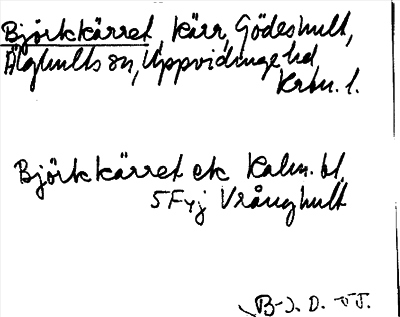 Björkkärret, kärr, Gödeshult,
Älghults sn, Uppvidinge hd,
Krbn. l.
Björkkärret ek Kalm. bl.
5 Fyj Vrånghult